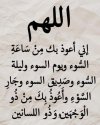 اللهم
إني أعوذ بك مِنْ سَاعَةِ
السُّوء ويوم السوء وليلة
السُّوء وصَدِيقِ السوء وجَارِ
السُّوْءِ وَأَعُوذُ بِكَ مِنْ ذُو
الْوَجْهَيْنِ وَذُو اللسانين